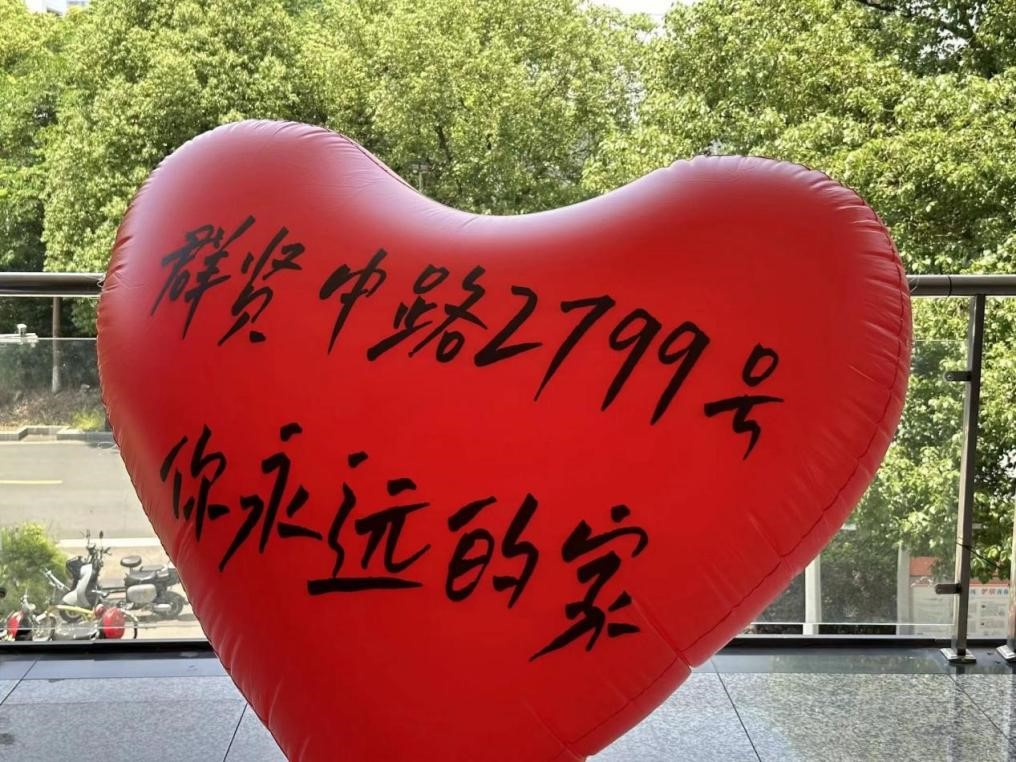 群贤中路2799号
你永远的家